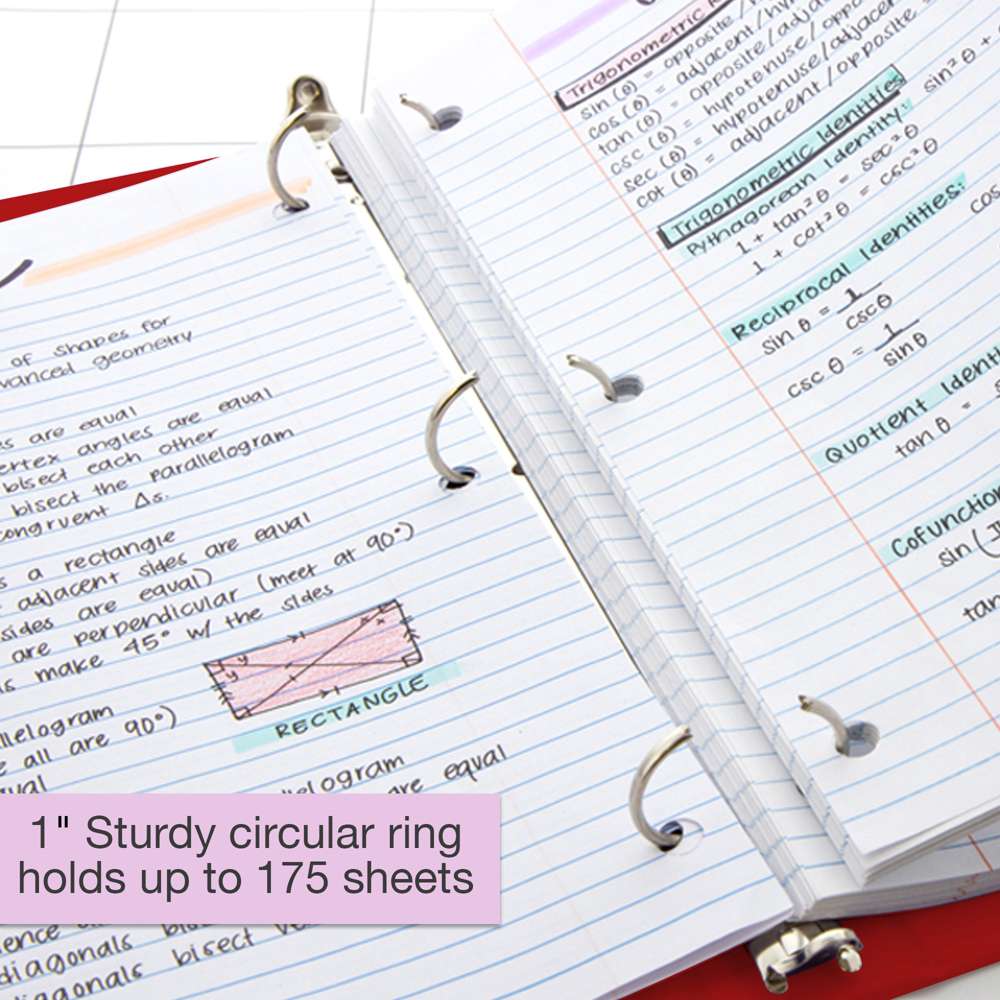 of shapes for
advanced geometry
es are equal
vertex angles are equal
bisect each other
bisect the parallelogram
congruent Δs.
s a rectangle
adjacent sides are equal
sides are equal)
are perpendicular (meet at 90°)
make 45° w/ the sides
x x
y y
RECTANGLE
llelogram
all are 90°)
llelogram
are equal
1" Sturdy circular ring
holds up to 175 sheets
diagonals
diagonals bisect
Trigonometric
sin (θ) = opposite/hy
cos (θ) = adjacent/hyp
tan (θ) = opposite/adja
csc (θ) = hypotenuse/oppo
sec (θ) = hypotenuse/adjacen
cot (θ) = adjacent/opposite
Trigonometric Identities
Pythagorean Identity: sin²θ +
1 + tan²θ = sec²θ
1 + cot²θ = csc²θ
Reciprocal Identities:
sin θ = 1 cos
cscθ
csc θ = 1
sinθ
Quotient Identi
tan θ =
Cofunction
sin (
tan